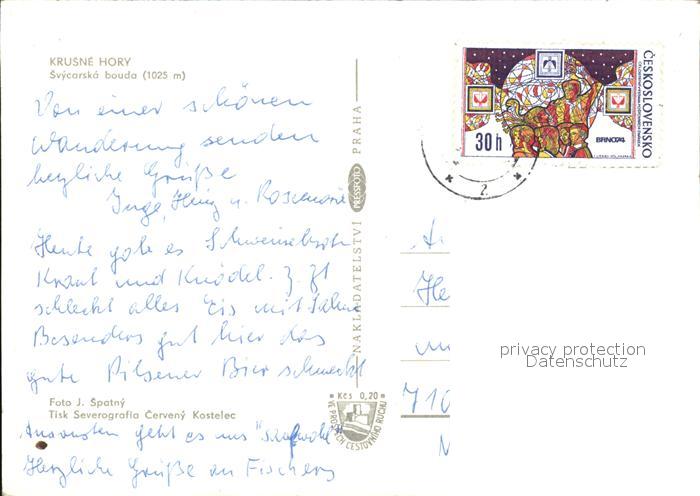 KRUSNÉ HORY
Švýcarská bouda (1025 m)
Von einer schönen
Wanderung senden
herzliche Grüße
Inge, Heinz u. Rosemarie
Heute gab es Schweinebraten
Kraut und Knödel. Z. Zt
schleckt alles Eis mit Sahne
Besonders gut hier das
gute Pilsener Bier schmeckt
Foto J. Špatný
Tisk Severografia Červený Kostelec
Ansonsten geht es uns "sauwohl"
Herzliche Grüße an Fischers
NAKLADATELSTVÍ PRESSFOTO PRAHA
Kčs 0,20
VE PROSPĚCH CESTOVNÍHO RUCHU
ČESKOSLOVENSKO
30 h
BRNO74
2
710
privacy protection
Datenschutz